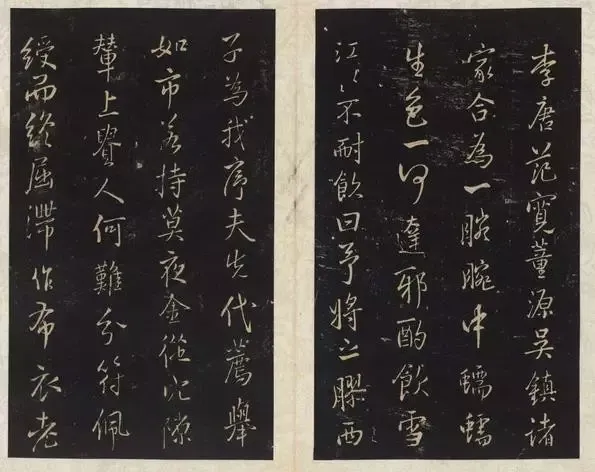 李唐范寬董源吳鎮諸
家合為一腕腕中蠕蠕
生色一何達邪酌飲雪〻
江〻不耐飲曰予將之膠西
子為我序夫先代薦舉
如市若持莫夜金從穴隙
輦上賢人何難分符佩
綬而終屈滯作布衣老